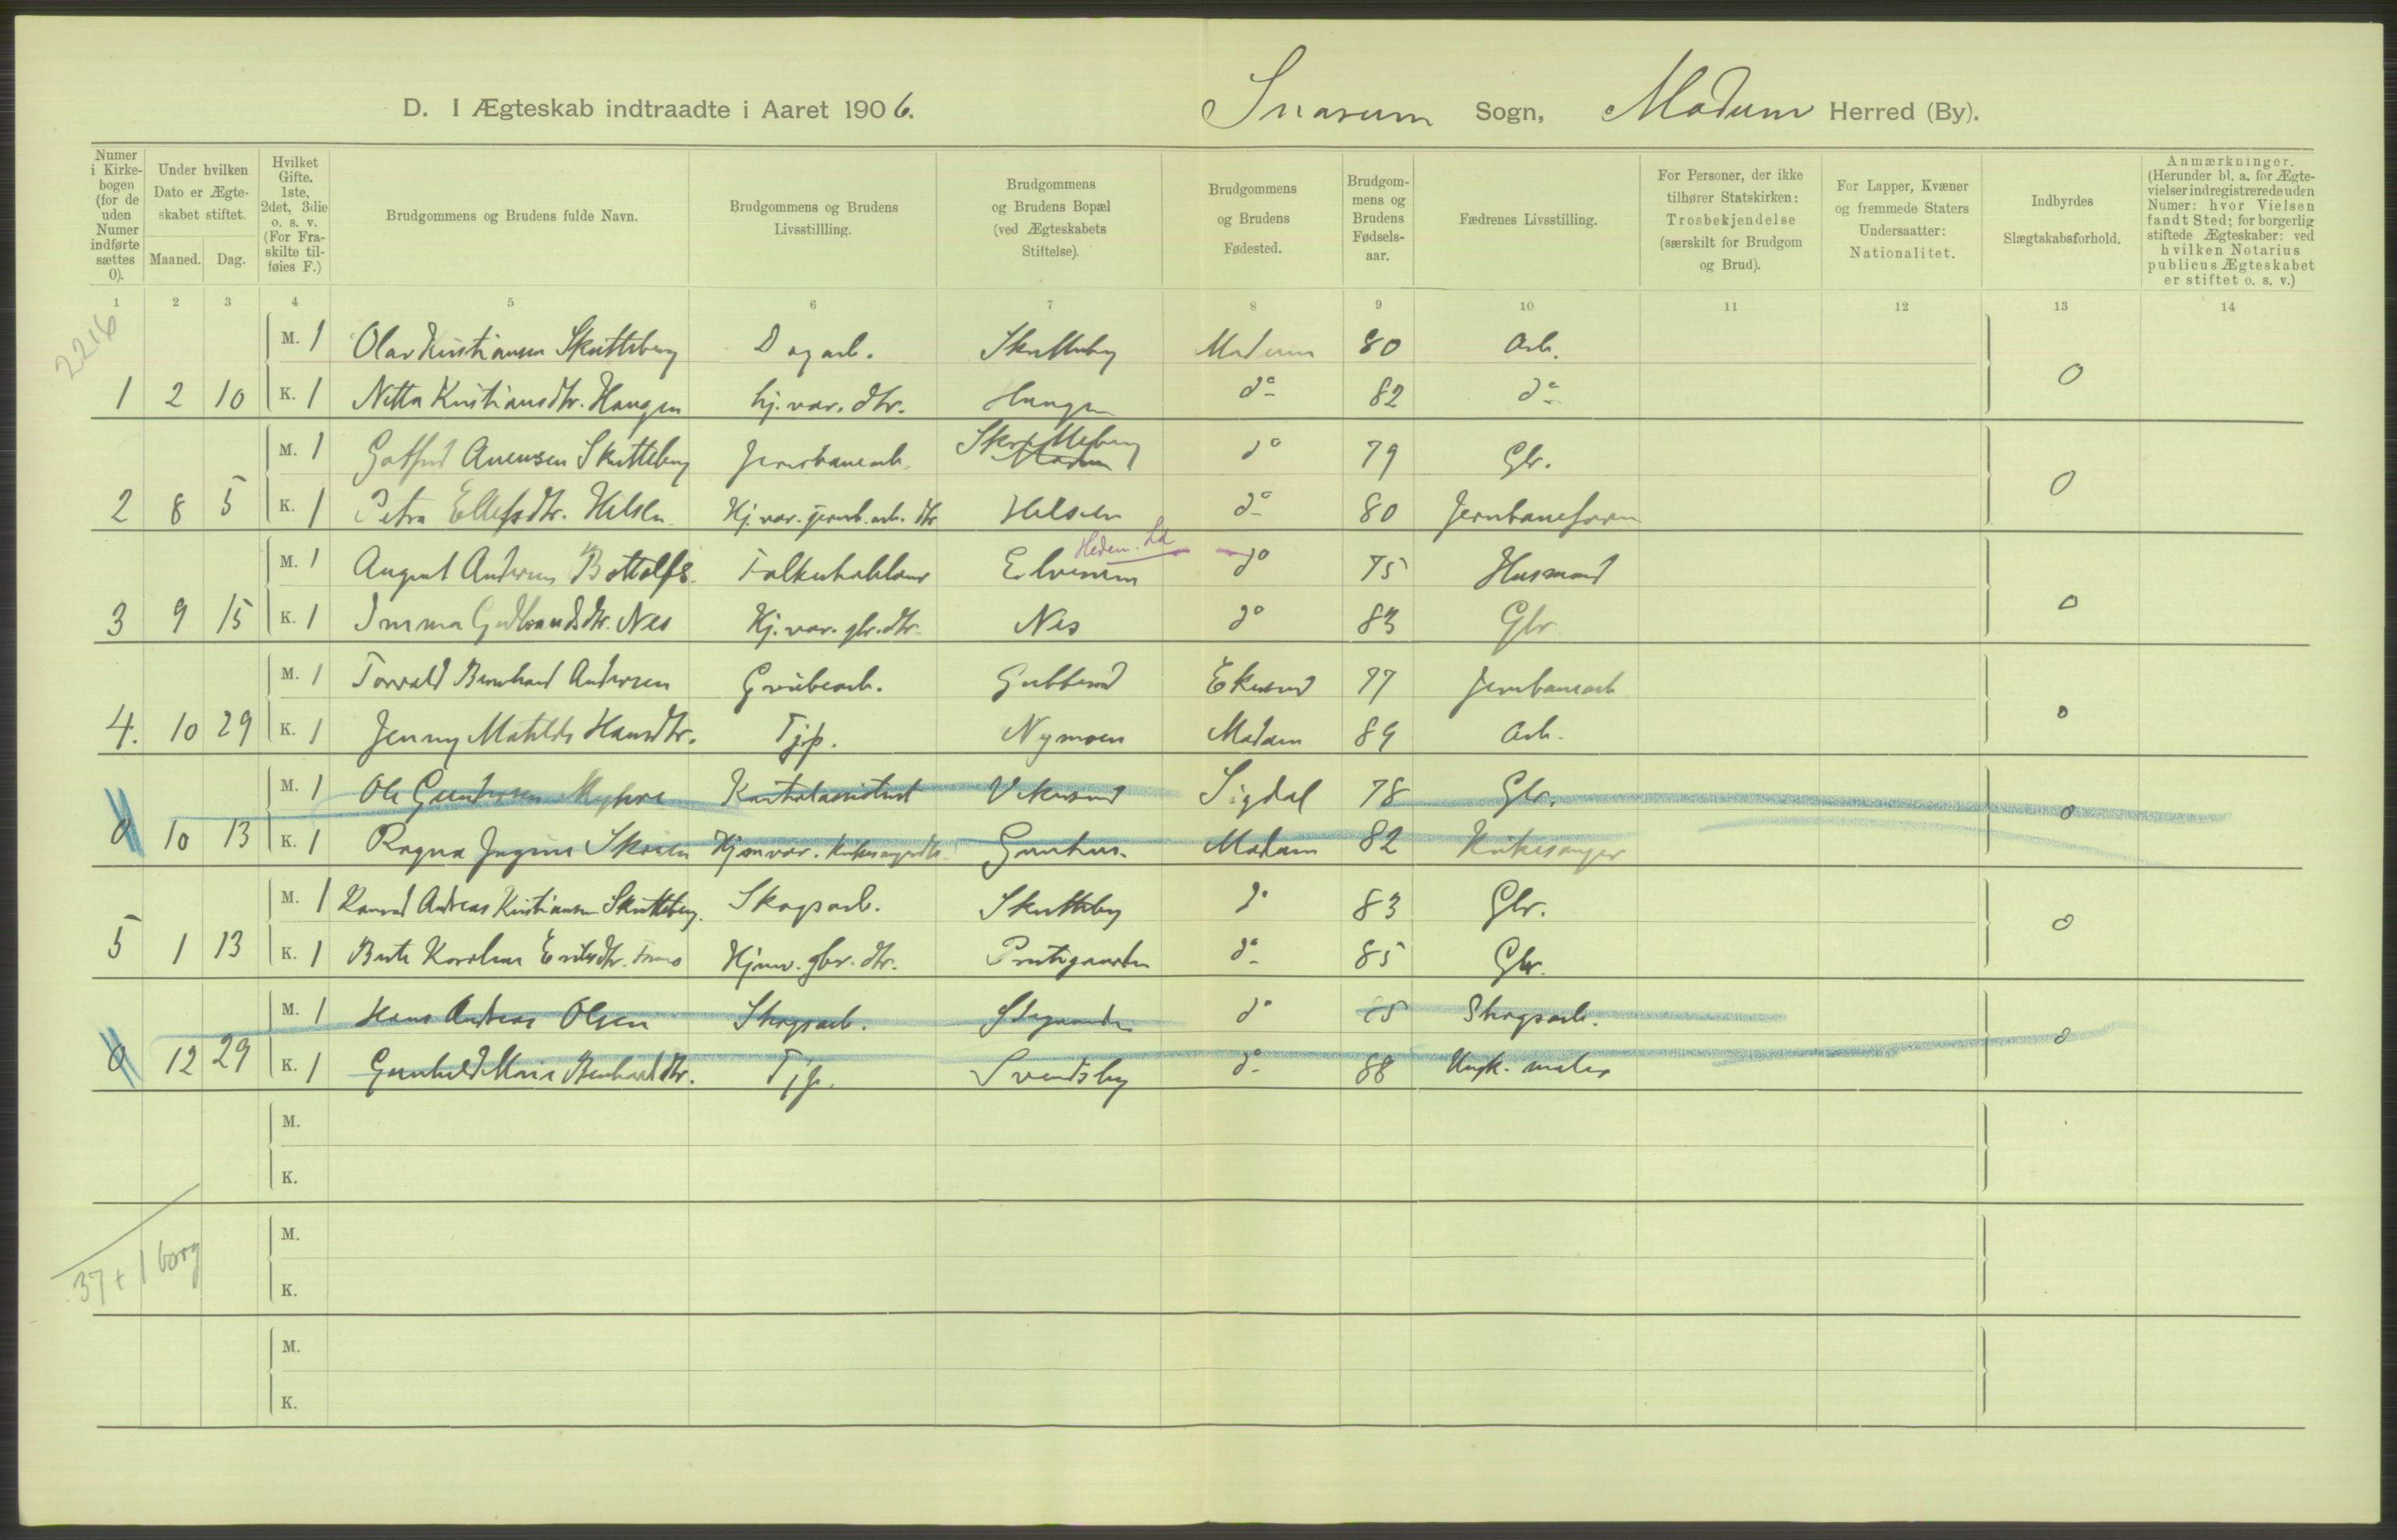 D. I Ægteskab indtraadte i Aaret 1906. Snarum Sogn, Modum Herred (By).
Numer i Kirkebogen (for de uden Numer indførte sættes 0).
Under hvilken Dato er Ægteskabet stiftet.
Maaned. Dag.
Hvilket Gifte. 1ste, 2det, 3die o. s. v. (For Fraskilte tilføies F.)
Brudgommens og Brudens fulde Navn.
Brudgommens og Brudens Livsstillling.
Brudgommens og Brudens Bopæl (ved Ægteskabets Stiftelse).
Brudgommens og Brudens Fødested.
Brudgommens og Brudens Fødselsaar.
Fædrenes Livsstilling.
For Personer, der ikke tilhører Statskirken: Trosbekjendelse (særskilt for Brudgom og Brud).
For Lapper, Kvæner og fremmede Staters Undersaatter: Nationalitet.
Indbyrdes Slægtskabsforhold.
Anmærkninger. (Herunder bl. a. for Ægtevielser indregistrerede uden Numer: hvor Vielsen fandt Sted; for borgerlig stiftede Ægteskaber: ved hvilken Notarius publicus Ægteskabet er stiftet o. s. v.)
1 2 3 4 5 6 7 8 9 10 11 12 13 14
2216
M. 1 Olav Kristiansen Skutteberg Dagarb. Modum 80 Arb.
1 2 10 K. 1 Kristiansdtr. Haugen hj. var. dtr. Haugen do 82 do 0
M. 1 Skutteberg Jernbanearb. Skutteberg Modum do 79 Gbr.
2 8 5 K. 1 Petra Ellefsdtr. Helsen Hj. var. jernb. arb. dtr Helsen do 80 Jernbaneform 0
Hedem.
M. 1 August Andersen Elverum do 75 Husmand
3 9 15 K. 1 Gudbrandsdtr. Nes Hj. var. gbr. dtr. Nes do 83 Gbr. 0
M. 1 Torvald Bernhard Andersen Grubearb. Ekersund 77 Jernbanearb
4. 10 29 K. 1 Jenny Matilde Hansdtr. Tjp. Nymoen Modum 89 Arb. 0
M. 1 Ole Gundersen Myhre Vikersund Sigdal 78 Gbr.
0 10 13 K. 1 Ragna Hj. var. Modum 82 Kirkesanger 0
M. 1 Konrad Andreas Kristiansen Skutteberg. Skogsarb. Skutteberg do 83 Gbr.
5 1 13 K. 1 Karoline Hjmv. gbr. dtr. do 85 Gbr. 0
M. 1 Hans Andreas Olsen Skogsarb. do 85 Skogsarb.
0 12 29 K. 1 Gunhild Marie Tjp. Svendsby do 88 Ungk. maler 0
M.
K.
M.
37 + 1 borg
K.
M.
K.